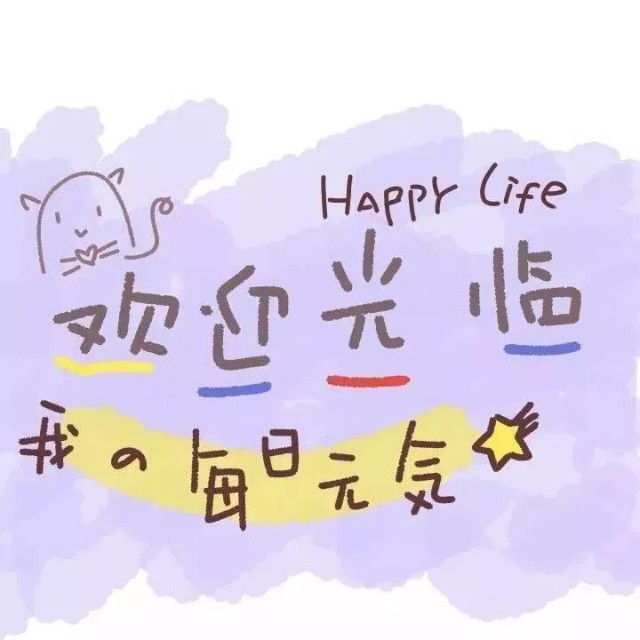 Happy Life
欢迎光临
我の每日元気